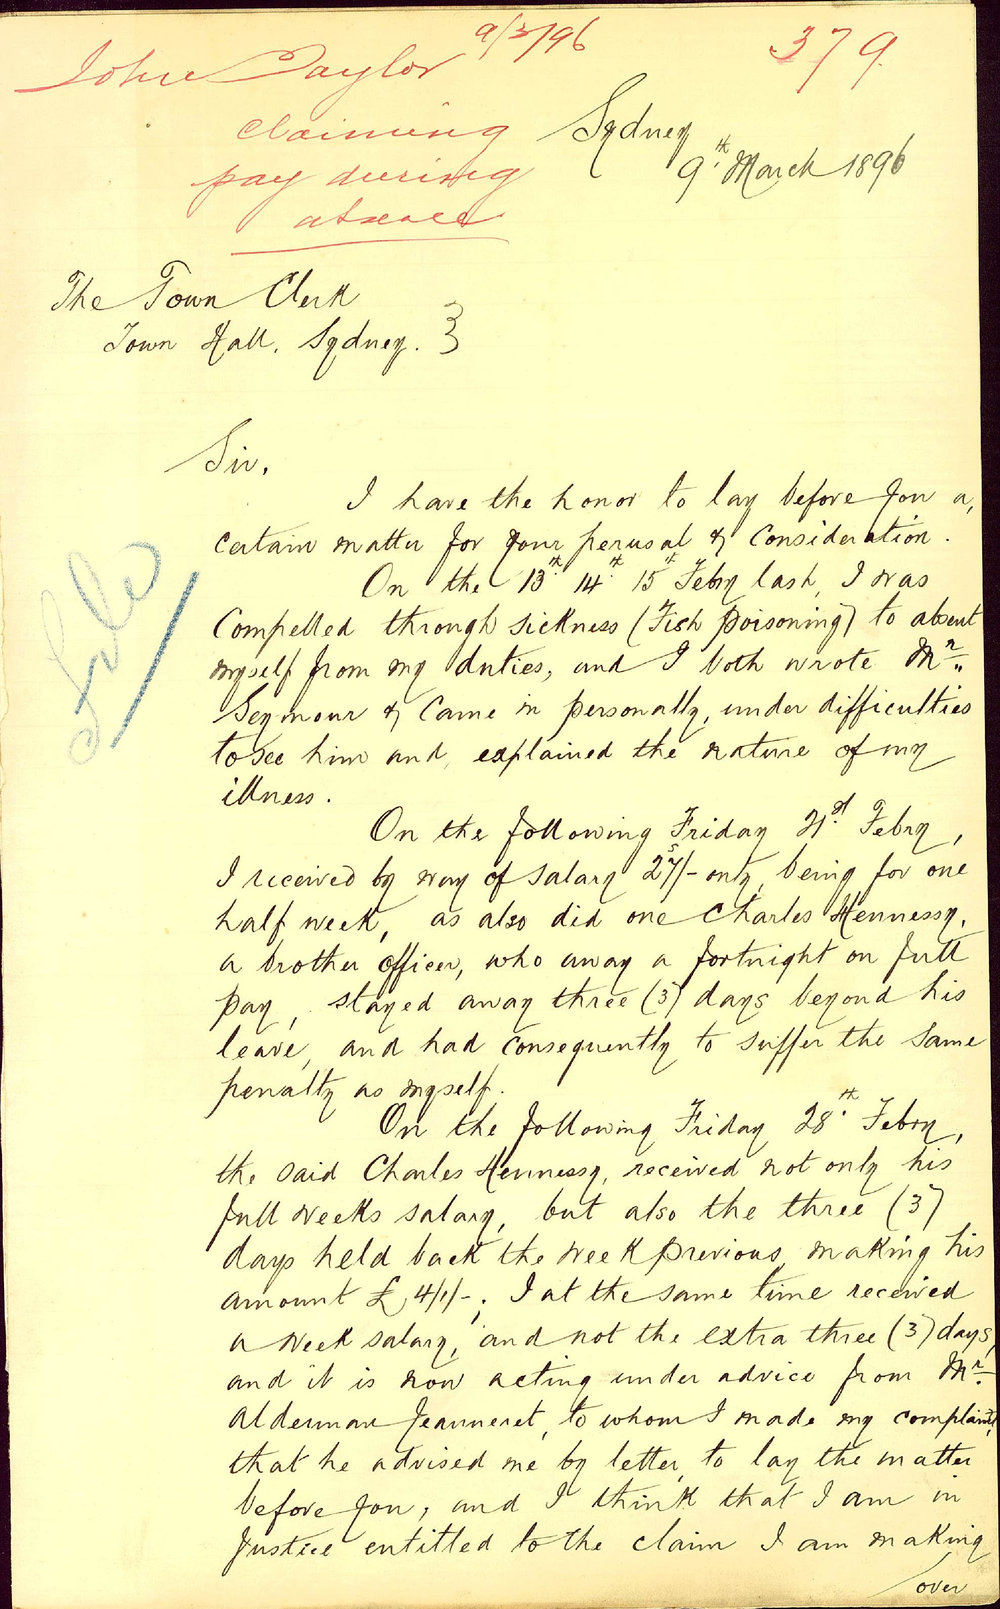 9/3/96
379
John Taylor
claiming
pay during
absence
Sydney
9th March 1896
The Town Clerk
Town Hall, Sydney. }
File
Sir,
I have the honor to lay before you a,
certain matter for your perusal & Consideration.
On the 13th 14th 15th Febry last, I was
Compelled through sickness (Fish poisoning) to absent
myself from my duties, and I both wrote Mr.
Seymour & Came in personally, under difficulties
to see him and, explained the nature of my
illness.
On the following Friday 21st Febry,
I received by way of salary 27/- only, being for one
half week, as also did one Charles Hennessy,
a brother officer, who away a fortnight on full
pay, stayed away three (3) days beyond his
leave, and had consequently to suffer the same
penalty as myself.
On the following Friday 28th Febry,
the said Charles Hennessy, received not only his
full weeks salary, but also the three (3)
days held back the week previous, making his
amount £4/1/-; I at the same time received
a week salary, and not the extra three (3) days,
and it is now acting under advice from Mr.
Alderman Jeanneret, to whom I made my complaint,
that he advised me by letter, to lay the matter
before you, and I think that I am in
Justice entitled to the claim I am making
over